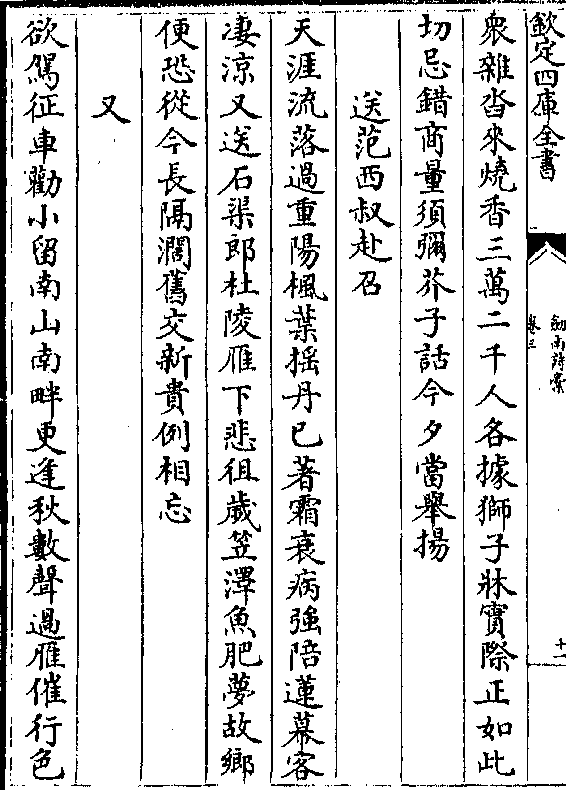 欽定四庫全書
劍南詩藁
卷三
十一
衆雜沓來燒香三萬二千人各據獅子牀實際正如此
切忌錯商量須彌芥子話今夕當舉揚
送范西叔赴召
天涯流落過重陽楓葉揺丹已著霜衰病強陪蓮幕客
凄涼又送石渠郎杜陵雁下悲徂歲笠澤魚肥夢故鄉
便恐從今長隔濶舊交新貴例相忘
又
欲駕征車勸小留南山南畔更逢秋數聲過雁催行色